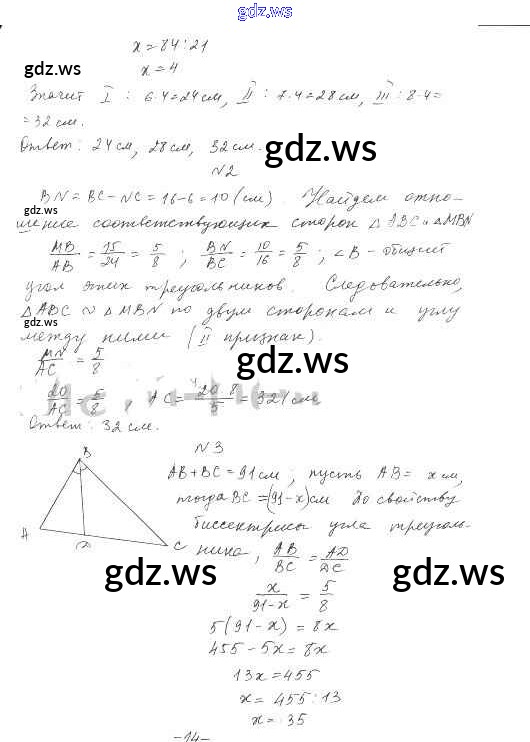 gdz.ws
x = 84 : 21
x = 4
gdz.ws
Значит I : 6·4=24 см, II : 7·4=28 см, III : 8·4=
=32 см.
Ответ: 24 см, 28 см, 32 см.
gdz.ws
N2
BN = BC - NC = 16 - 6 = 10 (см). Найдем отно-
gdz.ws
шение соответствующих сторон △ABC и △MBN
MB/AB = 15/24 = 5/8 ; BN/BC = 10/16 = 5/8 ; ∠B - общий
угол этих треугольников. Следовательно,
△ABC ∾ △MBN по двум сторонам и углу
gdz.ws
между ними (II признак).
MN/AC = 5/8
gdz.ws
20/AC = 5/8 , AC = 20·8/5 = 32 см
Ответ: 32 см.
N3
B
A
D
C
AB + BC = 91 см ; пусть AB = x см,
тогда BC = (91-x) см По свойству
gdz.ws
биссектрисы угла треуголь-
ника, AB/BC = AD/DC
gdz.ws
gdz.ws
x/91-x = 5/8
5(91-x) = 8x
455 - 5x = 8x
13x = 455
x = 455 : 13
x = 35
-14-